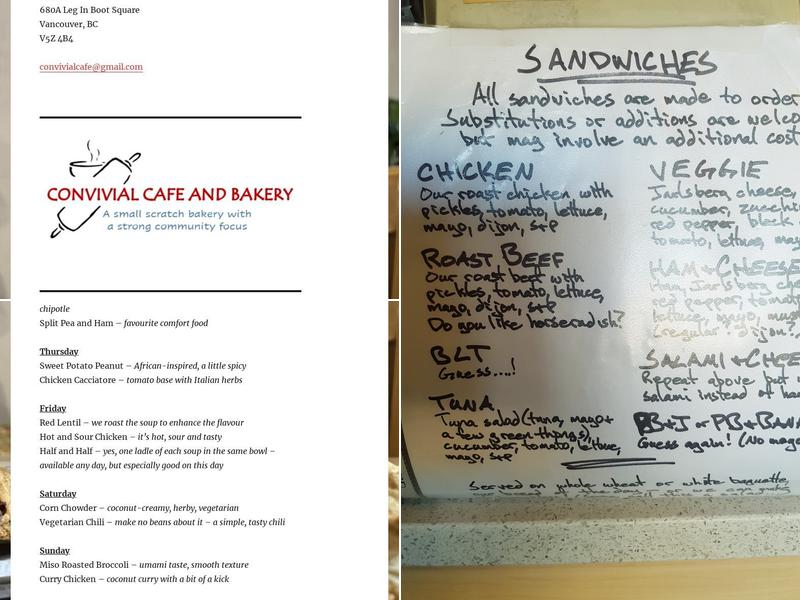 680A Leg In Boot Square
Vancouver, BC
V5Z 4B4
convivialcafe@gmail.com
CONVIVIAL CAFE AND BAKERY
A small scratch bakery with
a strong community focus
chipotle
Split Pea and Ham – favourite comfort food
Thursday
Sweet Potato Peanut – African-inspired, a little spicy
Chicken Cacciatore – tomato base with Italian herbs
Friday
Red Lentil – we roast the soup to enhance the flavour
Hot and Sour Chicken – it's hot, sour and tasty
Half and Half – yes, one ladle of each soup in the same bowl –
available any day, but especially good on this day
Saturday
Corn Chowder – coconut-creamy, herby, vegetarian
Vegetarian Chili – make no beans about it – a simple, tasty chili
Sunday
Miso Roasted Broccoli – umami taste, smooth texture
Curry Chicken – coconut curry with a bit of a kick
SANDWICHES
All sandwiches are made to order
Substitutions or additions are welco
but may involve an additional cost
CHICKEN
Our roast chicken with
pickles, tomato, lettuce,
mayo, dijon, s+p
ROAST BEEF
Our roast beef with
pickles, tomato, lettuce,
mayo, dijon, s+p
Do you like horseradish?
BLT
Guess....!
TUNA
Tuna salad (tuna, mayo +
a few green things),
cucumber, tomato, lettuce,
mayo, s+p
VEGGIE
Jarlsberg cheese,
cucumber, zucchi
red pepper, black
tomato, lettuce, may
HAM + CHEESE
Ham, Jarlsberg che
red pepper, tomat
lettuce, mayo, mus
(regular? dijon?)
SALAMI + CHEE
Repeat above but w
salami instead of ha
PB+J or PB+BANA
Guess again! (No mayo
Served on whole wheat or white baguette,
our bread of the day, or